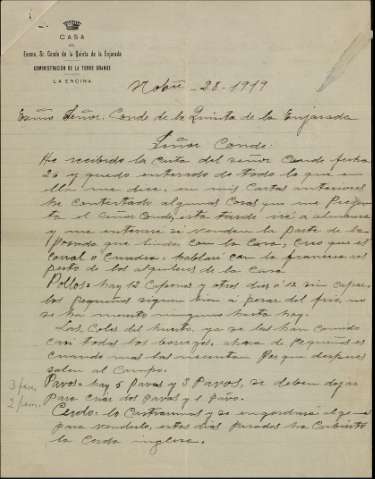 CASA
DEL
Excmo. Sr. Conde de la Quinta de la Enjarada
ADMINISTRACIÓN DE LA TORRE GRANDE
LA ENCINA
Nobre - 28 - 1919
Exmo Señor: Conde de la Quinta de la Enjarada
Señor Conde:
He recibido la Carta del señor Conde fecha
26 y quedo enterado de todo lo que en
ella me dice, en mis Cartas anteriores
he Contestado algunas Cosas que me pregun
ta el Señor Conde, esta tarde iré a
y me enteraré si venden la parte de la
Posada que linda con la Casa, creo que el
Corral o Cuadra, hablaré con la francisca res
pecto de los alquileres de la Casa
Pollos = hay 12 Capones y otros diez o 12 sin Capar,
los pequeños siguen bien a pesar del frio, no
se ha muerto ninguno hasta hoy.
Las Coles del huerto, ya se las han Comido
casi todas los borregos, ahora de pequeños es
cuando mas las necesitan Porque despues
salen al Campo.
3 Pavos = hay 5 Pavas y 3 Pavos, se deben dejar
2 para criar dos pavas y 1 pavo.
Cerdo = lo Castraremos y se engordará algo
para venderlo, estos dias pasados ha Cubierto
la Cerda inglesa.